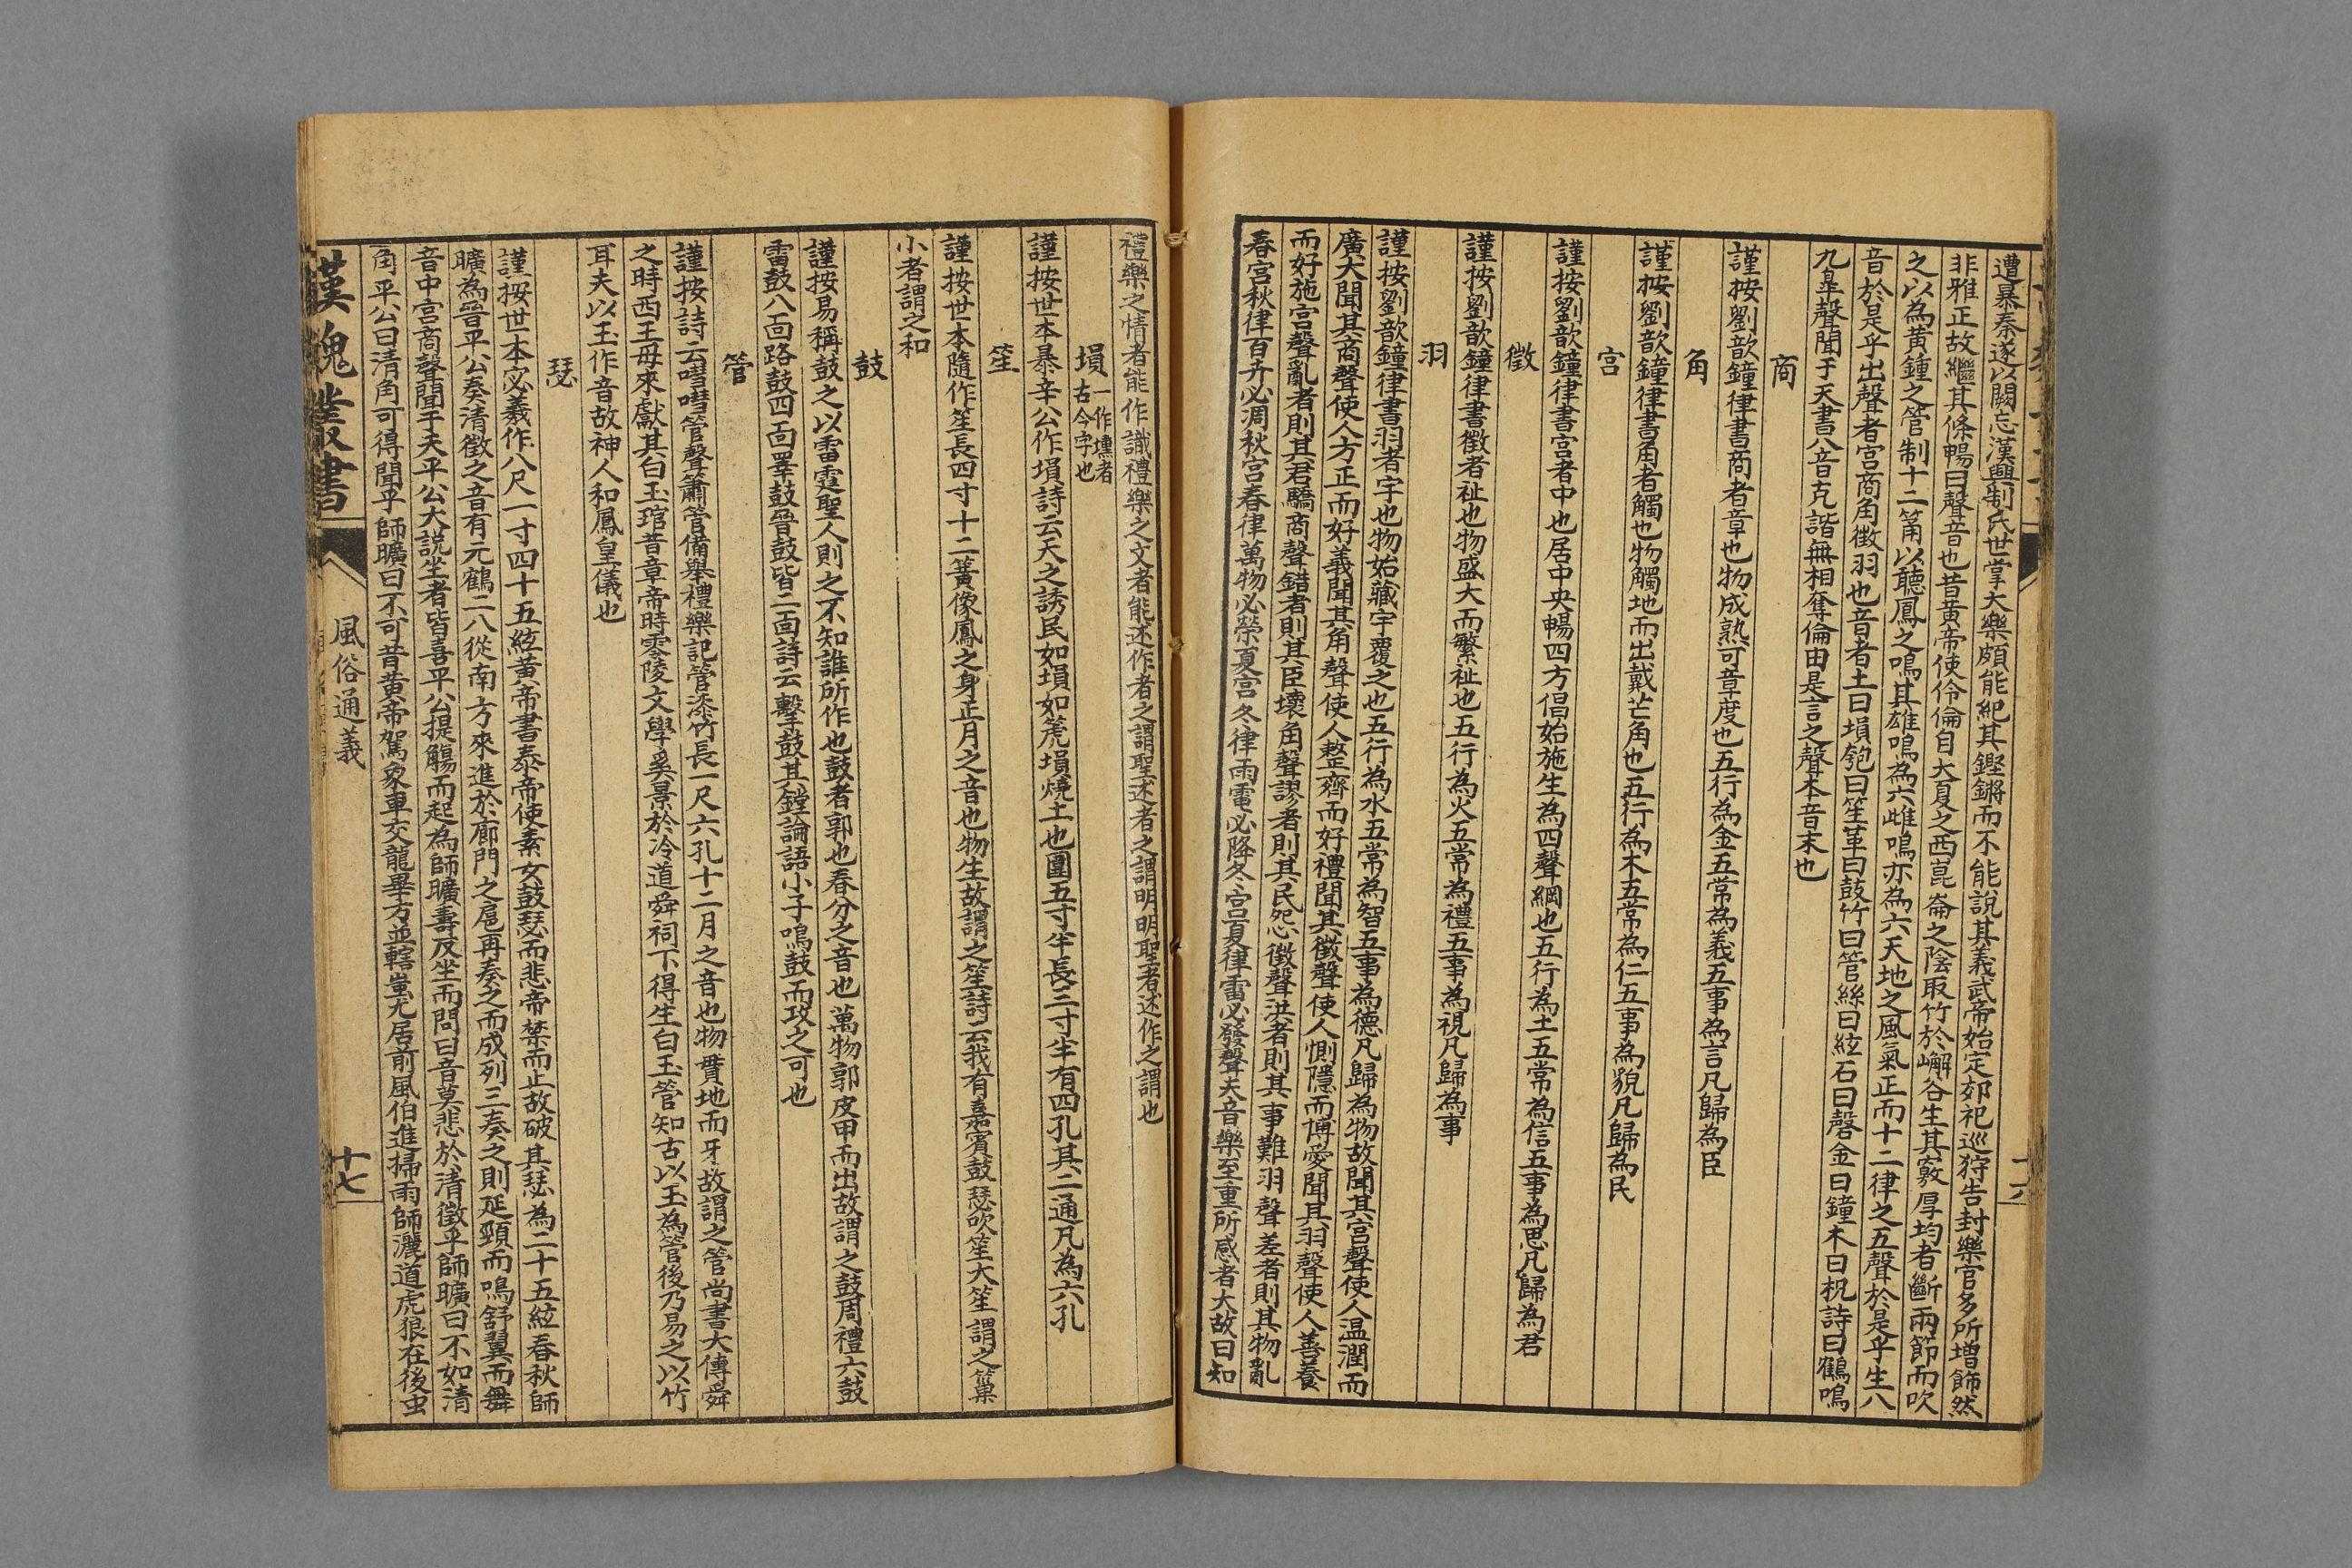 遭暴秦遂以闕忘漢興制氏世掌大樂頗能紀其鏗鏘而不能說其義武帝始定郊祀巡狩告封樂官多所增飾然
非雅正故繼其條暢曰聲音也昔黃帝使伶倫自大夏之西崑崙之陰取竹於嶰谷生其竅厚均者斷兩節而吹
之以為黃鍾之管制十二筩以聽鳳之鳴其雄鳴為六雌鳴亦為六天地之風氣正而十二律之五聲於是乎生八
音於是乎出聲者宮商角徵羽也音者土曰塤匏曰笙革曰鼓竹曰管絲曰絃石曰磬金曰鐘木曰柷詩曰鶴鳴
九皐聲聞于天書八音克諧無相奪倫由是言之聲本音末也
商
謹按劉歆鐘律書商者章也物成熟可章度也五行為金五常為義五事為言凡歸為臣
角
謹按劉歆鐘律書角者觸也物觸地而出戴芒角也五行為木五常為仁五事為貌凡歸為民
宮
謹按劉歆鐘律書宮者中也居中央暢四方倡始施生為四聲綱也五行為土五常為信五事為思凡歸為君
徵
謹按劉歆鐘律書徵者祉也物盛大而繁祉也五行為火五常為禮五事為視凡歸為事
羽
謹按劉歆鐘律書羽者宇也物始藏宇覆之也五行為水五常為智五事為德凡歸為物故聞其宮聲使人温潤而
廣大聞其商聲使人方正而好義聞其角聲使人整齊而好禮聞其徵聲使人惻隱而博愛聞其羽聲使人善養
而好施宮聲亂者則其君驕商聲錯者則其臣壞角聲謬者則其民怨徵聲洪者則其事難羽聲差者則其物亂
春宮秋律百卉必凋秋宮春律萬物必榮夏宮冬律雨雹必降冬宮夏律雷必發聲夫音樂至重所感者大故曰知
禮樂之情者能作識禮樂之文者能述作者之謂聖述者之謂明明聖者述作之謂也
塤 一作壎者
古今字也
謹按世本暴辛公作塤詩云天之誘民如塤如篪塤燒土也圍五寸半長三寸半有四孔其二通凡為六孔
笙
謹按世本隨作笙長四寸十二簧像鳳之身正月之音也物生故謂之笙詩云我有嘉賓鼓瑟吹笙大笙謂之簞
小者謂之和
鼓
謹按易稱鼓之以雷霆聖人則之不知誰所作也鼓者郭也春分之音也萬物郭皮甲而出故謂之鼓周禮六鼓
雷鼓八面路鼓四面鼛鼓晉鼓皆二面詩云擊鼓其鏜論語小子鳴鼓而攻之可也
管
謹按詩云嘒嘒管聲簫管備舉禮樂記管漆竹長一尺六孔十二月之音也物貫地而牙故謂之管尚書大傳舜
之時西王母來獻其白玉琯昔章帝時零陵文學奚景於泠道舜祠下得生白玉管知古以玉為管後乃易之以竹
耳夫以玉作音故神人和鳳皇儀也
瑟
謹按世本宓羲作八尺一寸四十五絃黃帝書泰帝使素女鼓瑟而悲帝禁而止故破其瑟為二十五絃春秋師
曠為晉平公奏清徵之音有元鶴二八從南方來進於廊門之扈再奏之而成列三奏之則延頸而鳴舒翼而舞
音中宮商聲聞于天平公大説坐者皆喜平公提觴而起為師曠壽反坐而問曰音莫悲於清徵乎師曠曰不如清
角平公曰清角可得聞乎師曠曰不可昔黃帝駕象車交龍畢方並轄蚩尤居前風伯進掃雨師灑道虎狼在後虫
漢魏叢書
風俗通義
十七